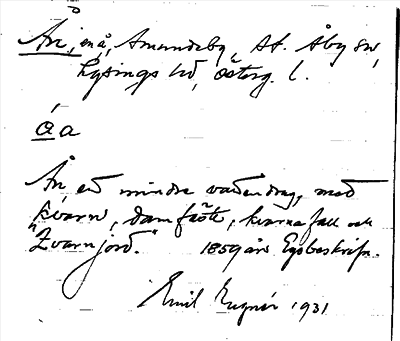 Ån, små, Amundeby, St. Åby sn,
Lysings hd, Österg. l.
ǻa
Ån, ett mindre vattendrag, med
kvarn, damfäste, kvarnafall och
"Qvarnjord." 1859 års Egobeskrifn.
Emil 1931